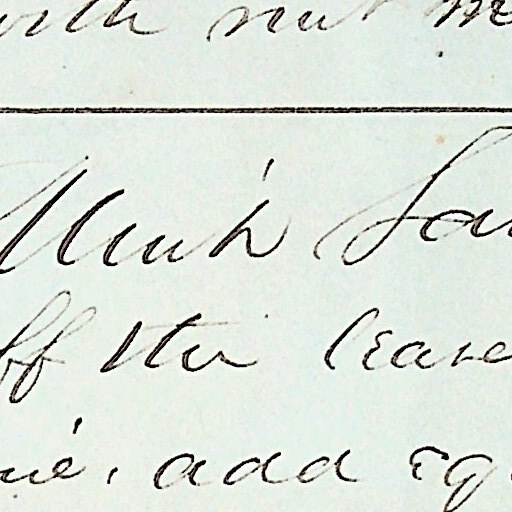 with nut me
Mint Sau
off the leave
ine, add eq